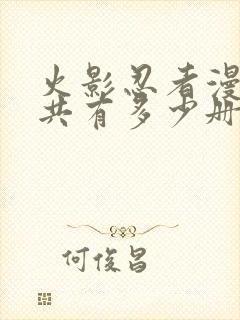 火影忍者漫
共有多少册
何俊昌